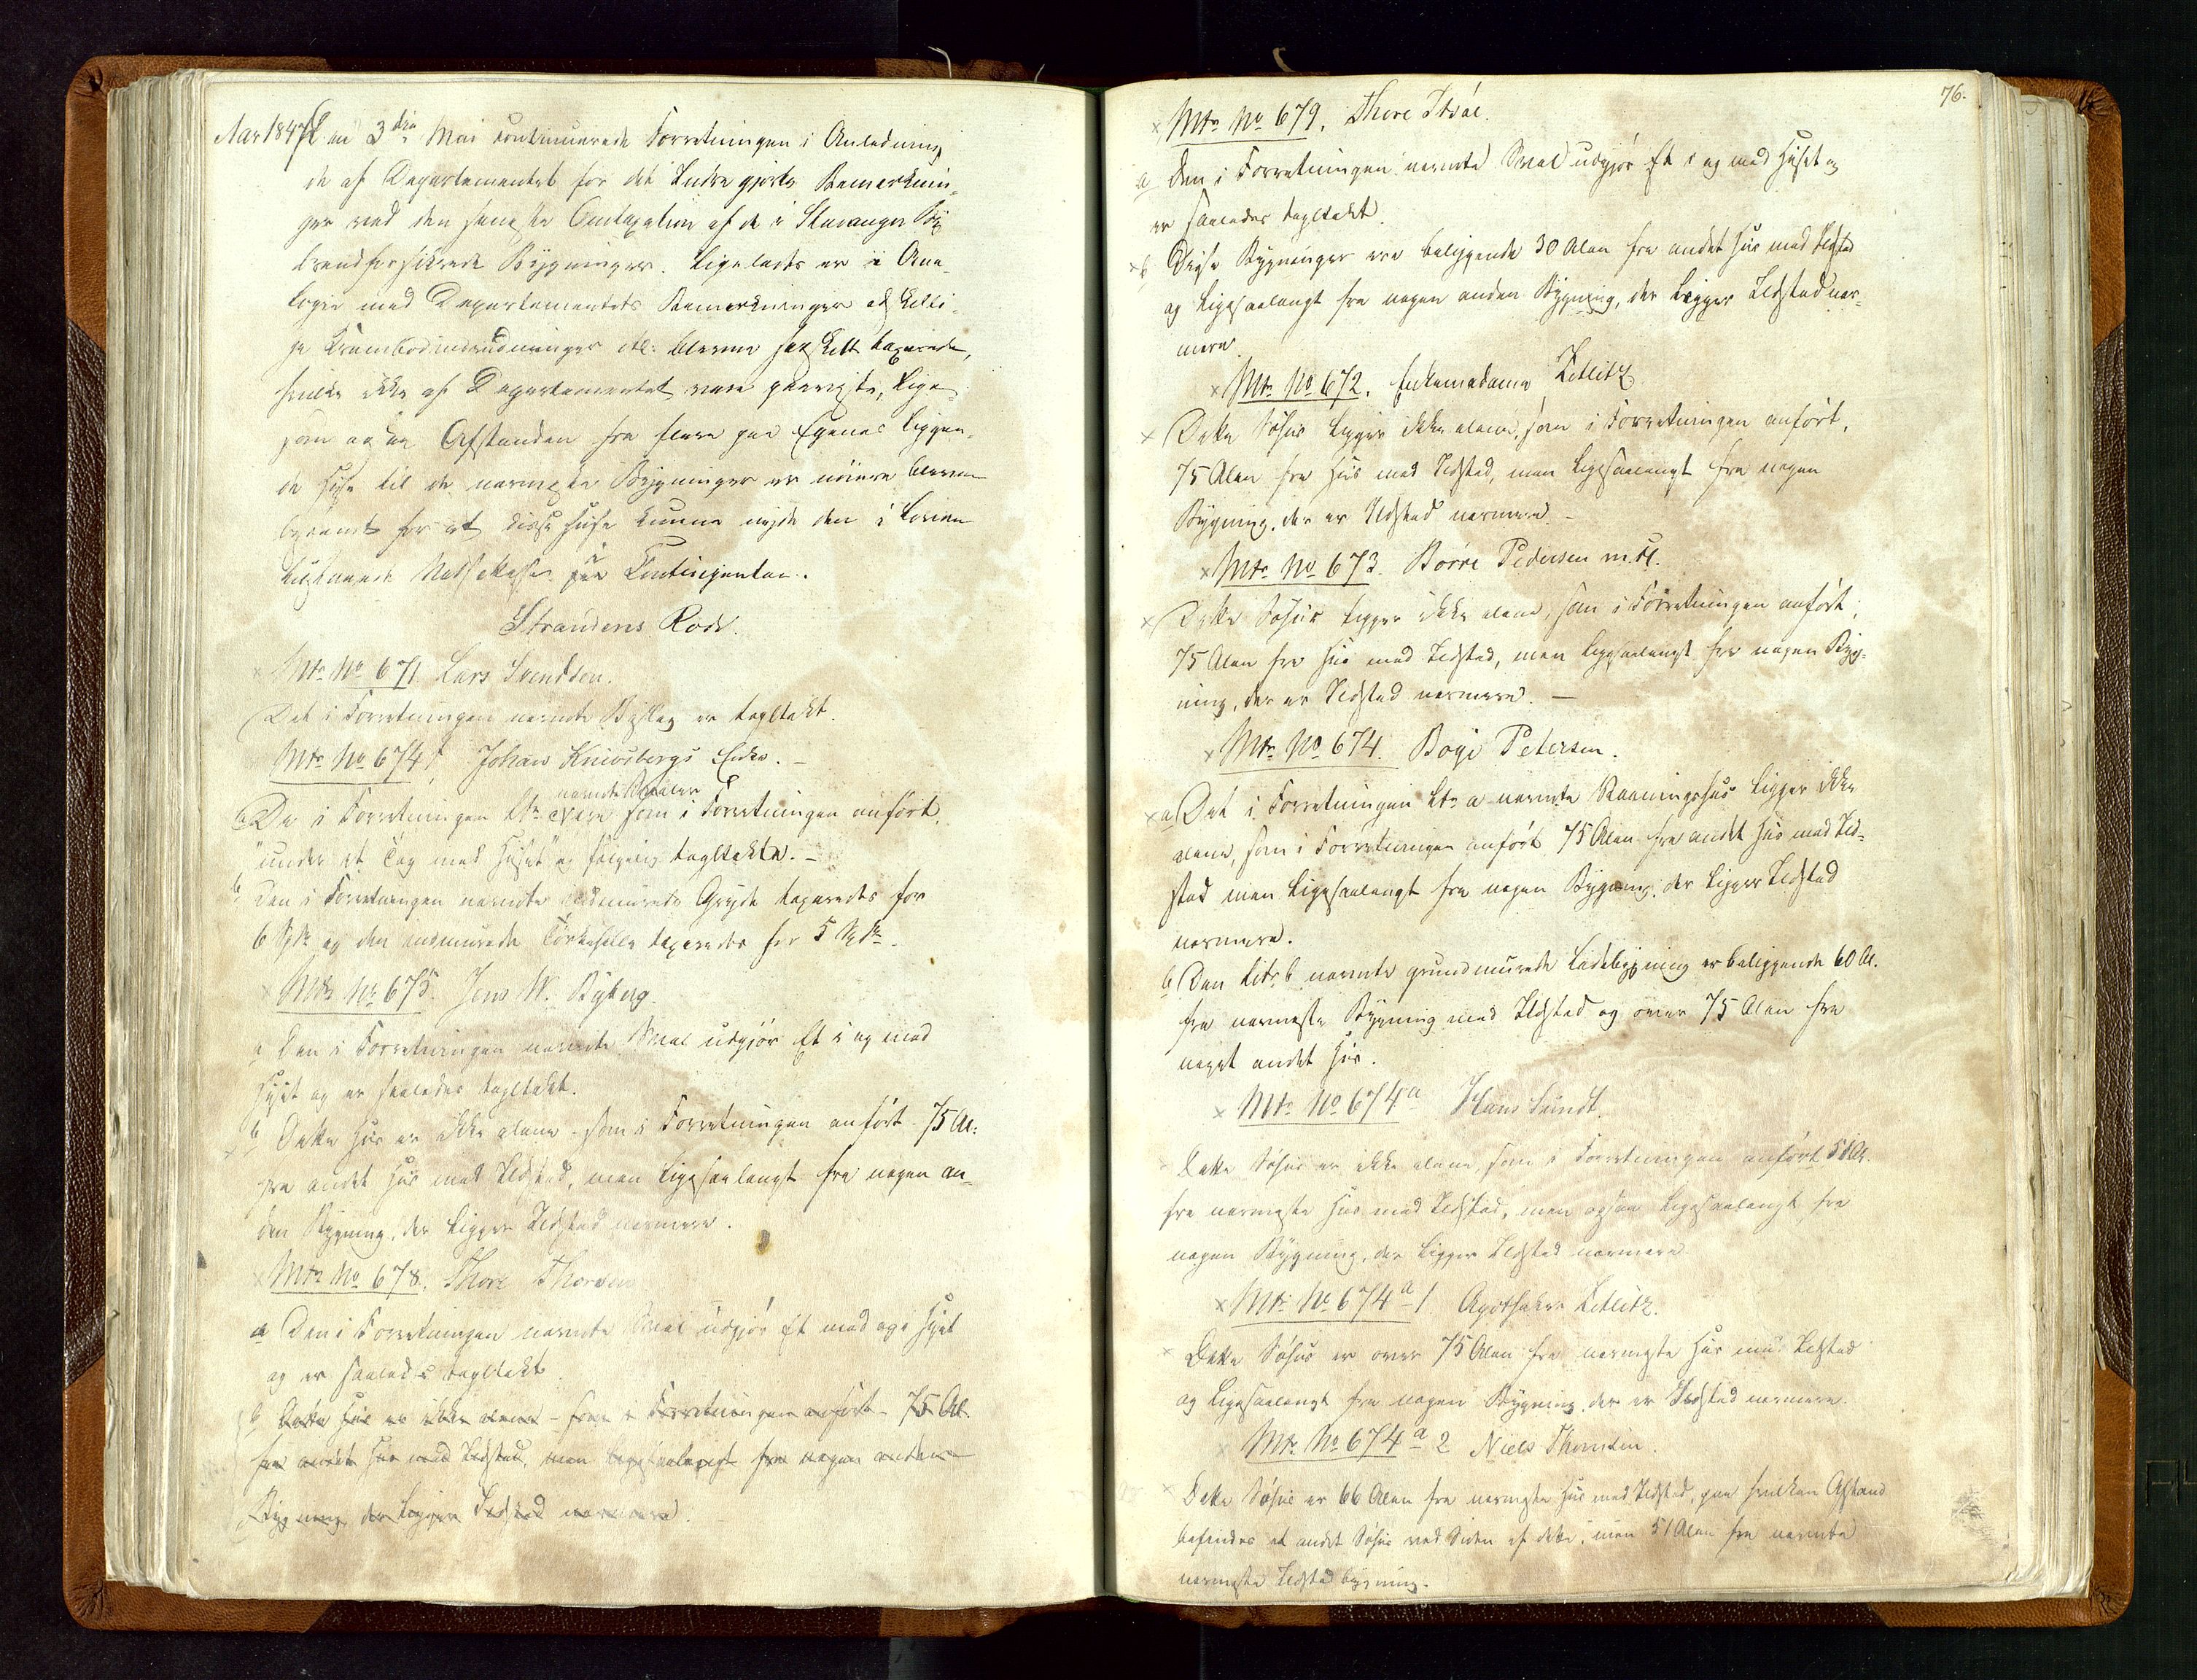 Aar 1847 den 3die Mai continuerede Forretningen i Anledning
de af Departementet for det Indre gjorte Bemærknin-
ger ved den seneste Omtaxation af de i Stavanger By
brandforsikrede Bygninger. Ligeledes er i Ana-
logie med Departementets Bemærkninger adskilli-
ge Krambodindredninger etc: blevne særskilt taxerede,
hvilke ikke af Departementet vare paaviste, lige-
som ogsaa Afstanden fra flere paa Egenes liggen-
de Huse til de nærmeste Bygninger er nøiere bleven
bestemt for at disse Huse kunne nyde den i Loven
hjemlede Nedsættelse i Contingenten.
Strandens Rode.
Mtr No 671 Lars Svendsen.
Det i Forretningen nævnte Bislag er tagltækt.
Mtr No 674 f, Johan Kniosbergs Enke. –
a De i Forretningen Ltr nævnte Svaler ere som i Forretningen anført,
"under et Tag med Huset" og følgelig tagltækte. –
b Den i Forretningen nævnte indmurede Gryde taxeredes for
6 Spd og den indmurede Tørkehelle taxeredes for 5 Spd.
Mtr No 675. Jens W. Ryberg.
a Den i Forretningen nævnte Sval udgjør Et i og med
Huset og er saaledes tagltækt.
b Dette Huus er ikke alene – som i Forretningen anført – 75 Al:
fra andet Huus med Ildsted, men ligesaalangt fra nogen an-
den Bygning, der ligger Ildsted nærmere.
Mtr No 678. Thore Thorsen
a Den i Forretningen nævnte Sval udgjør Et med og i Huset
og er saaledes tagltækt.
b Dette Huus er ikke alene – som i Forretningen anført – 75 Al.
fra andet Huus med Ildsted, men ligesaalangt fra nogen anden
Bygning, der ligger Ildsted nærmere.
76.
Mtr No 679. Thore
a Den i Forretningen nævnte Sval udgjør Et i og med Huset og
er saaledes tagltækt.
b Disse Bygninger ere beliggende 30 Alen fra andet Huus med Ildsted
og ligesaalangt fra nogen anden Bygning, der ligger Ildsted nær-
mere.
Mtr No 672. Enkemadame Zetlitz
Dette Søhuus ligger ikke alene, som i Forretningen anført,
75 Alen fra Huus med Ildsted, men ligesaalangt fra nogen
Bygning, der er Ildsted nærmere. –
Mtr No 673. Børre Pedersen m. fl.
Dette Søhuus ligger ikke alene, som i Forretningen anført,
75 Alen fra Huus med Ildsted, men ligesaalangt fra nogen Byg-
ning, der er Ildsted nærmere. –
Mtr No 674. Boye Petersen.
a Det i Forretningen Ltr a nævnte Vaaningshuus ligger ikke
alene, som i Forretningen anført 75 Alen fra andet Huus med Ild-
sted men ligesaalangt fra nogen Bygning, der ligger Ildsted
nærmere.
b Den Litr b nævnte grundmurede Ladebygning er beliggende 60 Al.
fra nærmeste Bygning med Ildsted og over 75 Alen fra
noget andet Huus.
Mtr No 674a Hans Sundt.
Dette Søhuus er ikke alene, som i Forretningen anført 51 Al.
fra nærmeste Huus med Ildsted, men ogsaa ligesaalangt fra
nogen Bygning, der ligger Ildsted nærmere.
Mtr No 674 a 1. Apotheker Zetlitz.
Dette Søhuus er over 75 Alen fra nærmeste Huus med Ildsted
og ligesaalangt fra nogen Bygning, der er Ildsted nærmere.
Mtr No 674 a 2 Niels Thomsen.
Dette Søhuus er 66 Alen fra nærmeste Huus med Ildsted, paa hvilken Afstand
befindes et andet Søhuus ved Siden af dette, men 51 Alen fra nævnte
nærmeste Ildstedbygning.